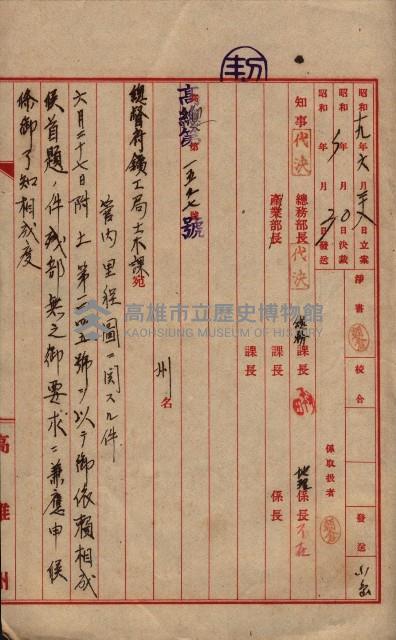 昭和十九年六月 日立案
昭和 年 月 日決裁
昭和 年 月30日發送
淨書
校合
發送
係取扱者
知事 代決
總務部長 代決
產業部長
總務課長
課長
課長
地理係長 不在
係長
高總 第一五七號
總督府鑛工局土木課宛
州名
管內里程圖ニ関スル件
六月二十七日附土第一四五號ヲ以テ御依賴相成
候首題ノ件残部無之御要求ニ兼應申候
條御了知相成度
高雄州
高雄市立歷史博物館
KAOHSIUNG MUSEUM OF HISTORY